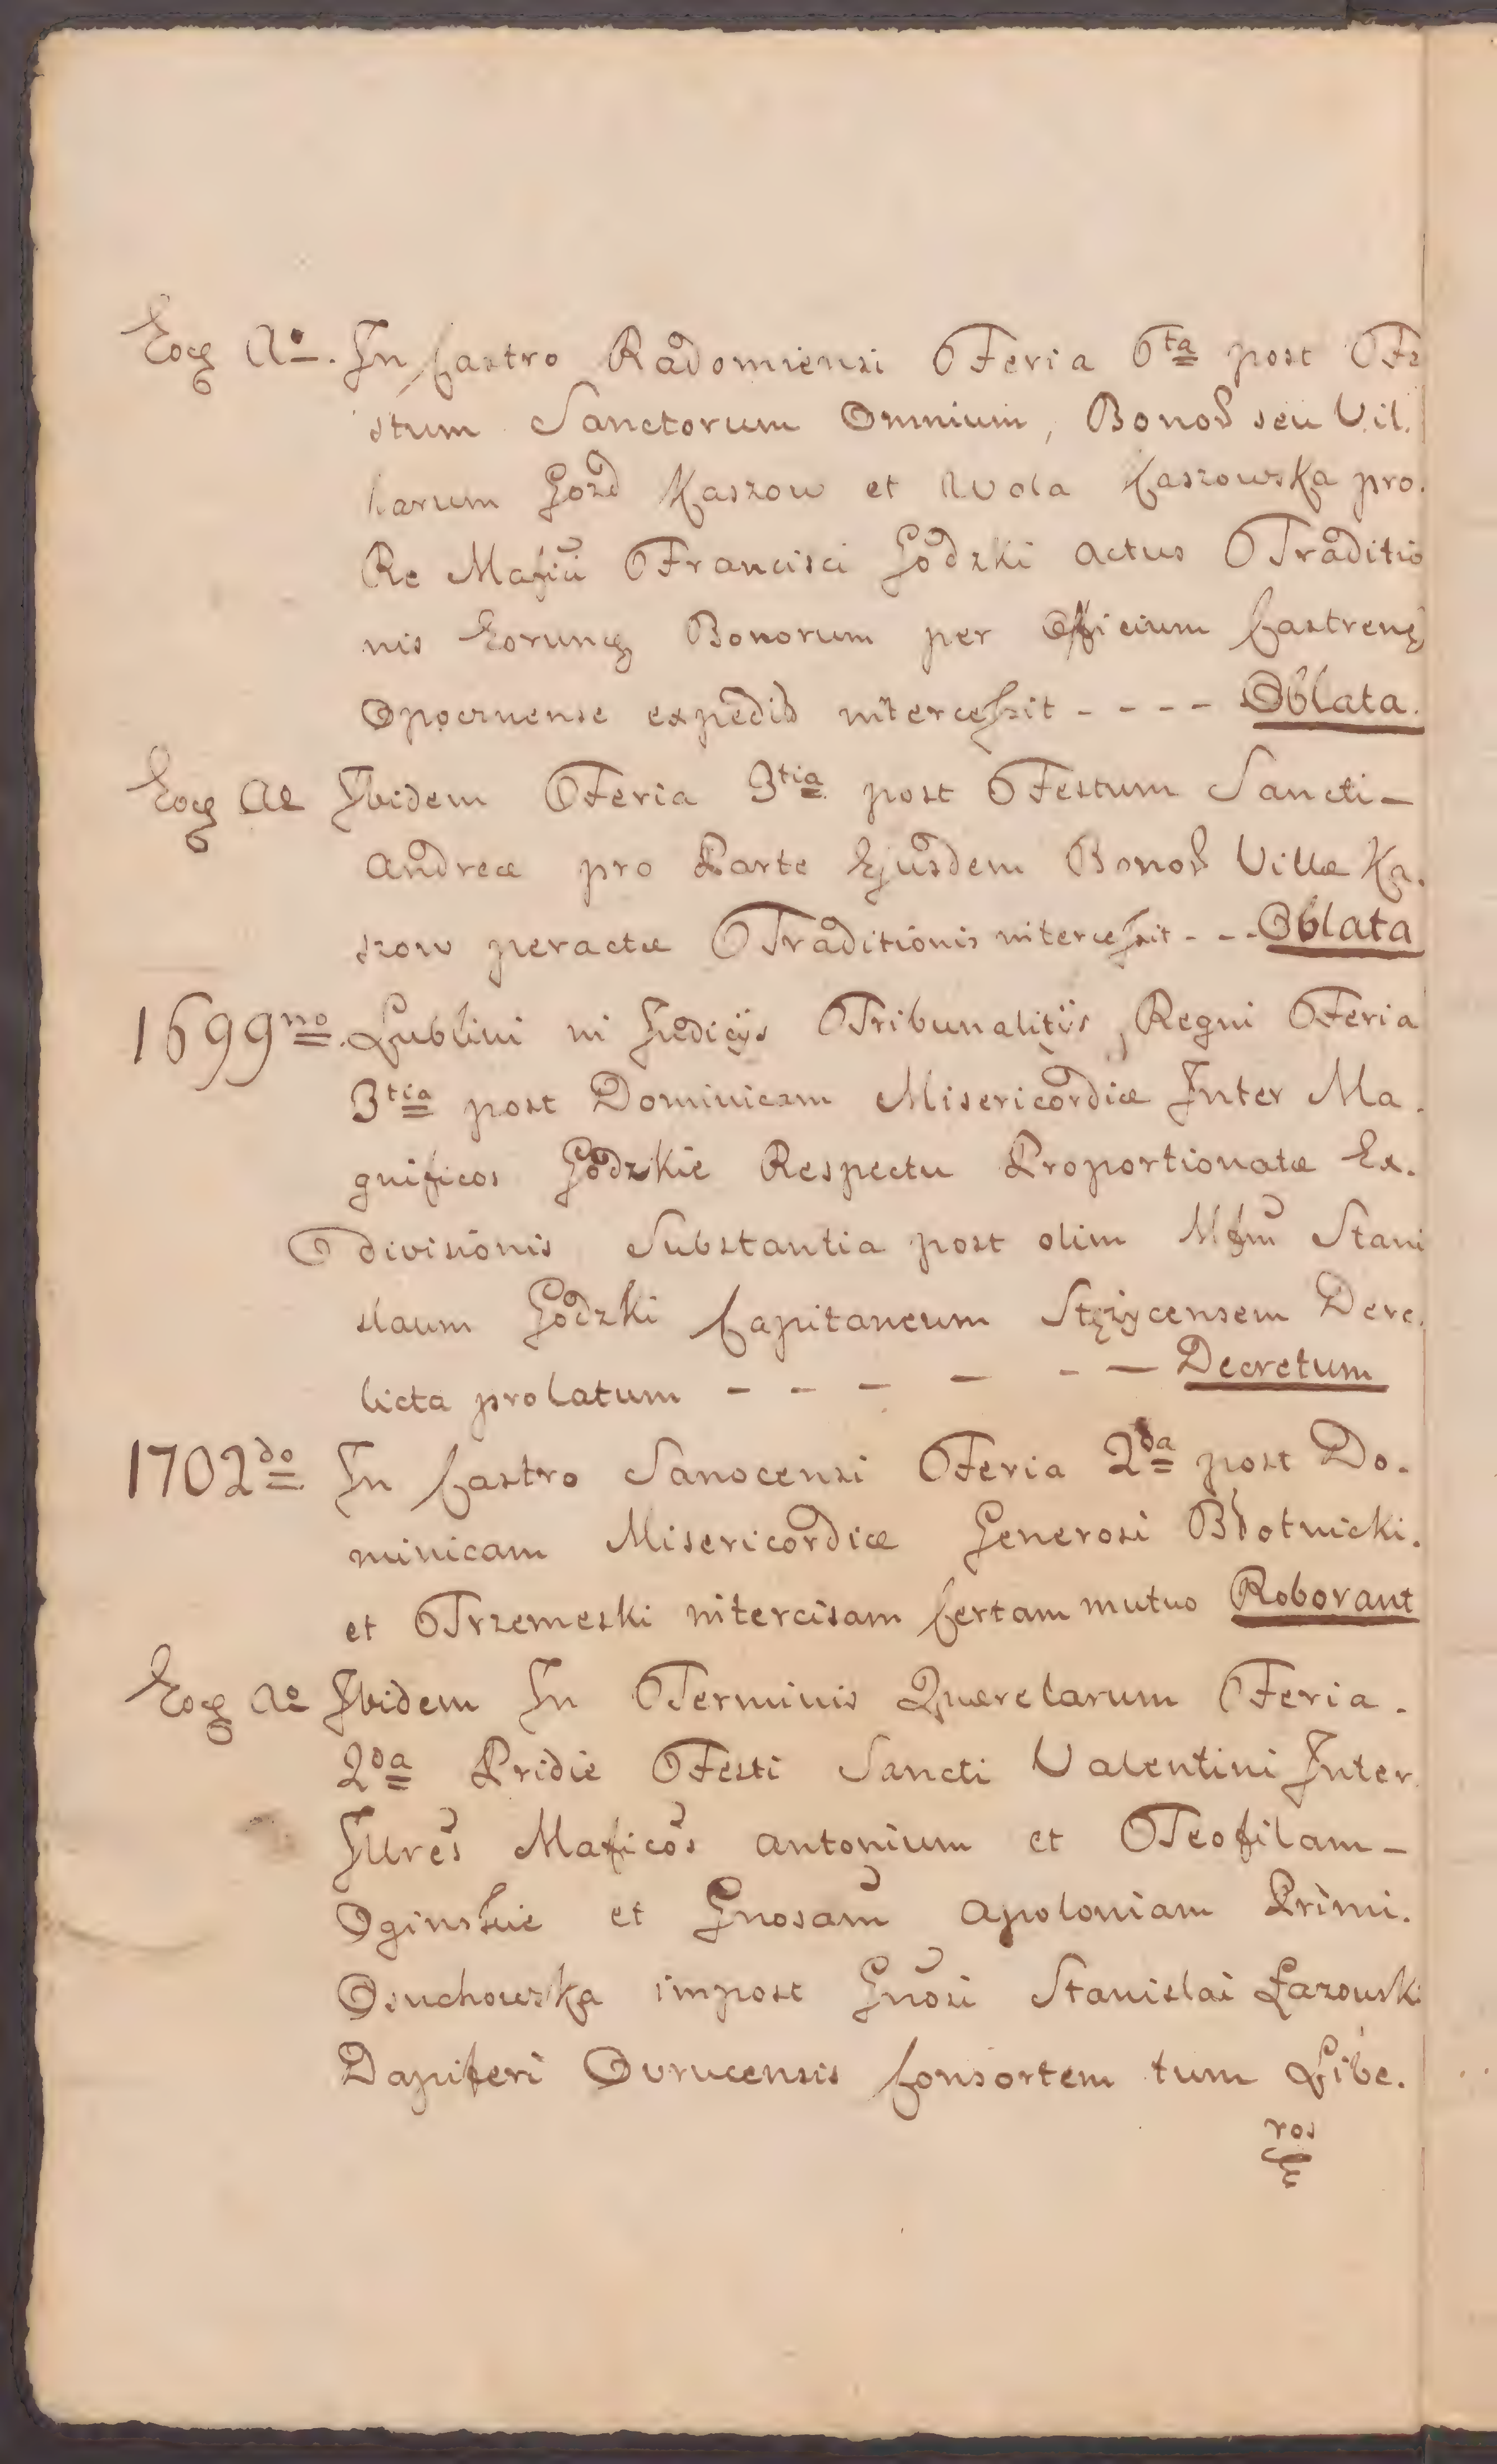 Eoq̃ Ao. In Castro Radomiensi Feria 6ta post Fe
stum Sanctorum Omnium, Bonoȝ seu Vil.
larum Gozd Kaszow et Wola Kaszowska pro.
Re Mafici Francisci Gödzki actus Traditio
nis Eorunq̃ Bonorum per Officium Castreng
Opocznense expediti intercessit - - - - Oblata.
Eoq̃ Ao Ibidem Feria 3tia post Festum Sancti -
Andreæ pro Parte Ejusdem Bonoȝ Villæ Ka.
szow peractæ Traditionis intercessit - - - Oblata
1699no. Lublini in Judicijs Tribunalitijs Regni Feria
3tia post Dominicam Misericordiæ Inter Ma.
gnificos Gödzkie Respectu Proportionatæ Ex.
divisionis Substantia post olim Mfum Stani
slaum Gödzki Capitaneum Stężycensem Dere.
licta prolatum - - - - - - Decretum
1702do In Castro Sanocensi Feria 2da post Do.
minicam Misericordiæ Generosi Błotnicki.
et Trzemeski intercisam Certam mutuo Roborant
Eoq̃ Ao Ibidem In Terminis Querelarum Feria.
2da Pridie Festi Sancti Valentini Inter
Illres Maficos Antonium et Teofilam -
Oginskie et Gnosam Apoloniam Primi.
Osuchowska impost Gnosi Stanislai Łazowski
Dapiferi Ovrucensis Consortem tum Libe.
ros